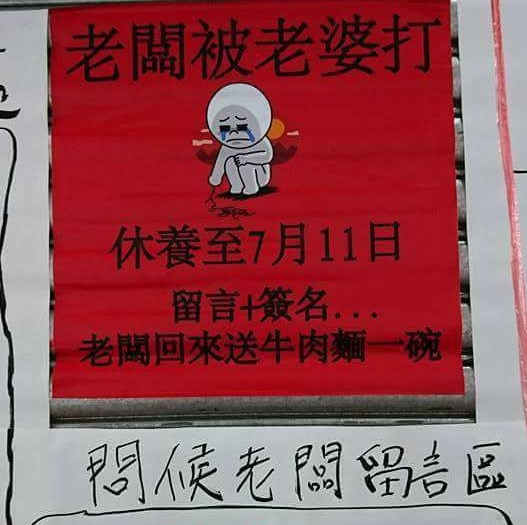 老闆被老婆打
休養至7月11日
留言+簽名...
老闆回來送牛肉麵一碗
問候老闆留言區